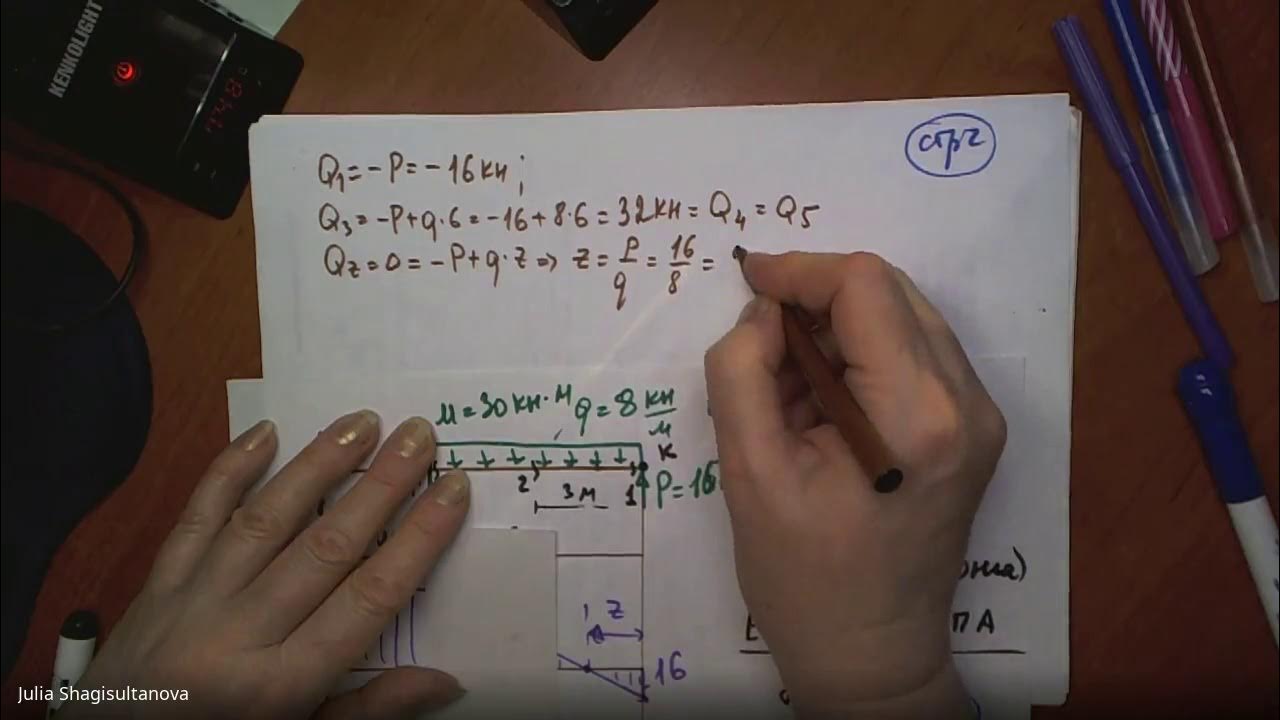 KENKOLIGHT
стр2
Q₁ = -P = -16 кн;
Q₃ = -P + q·6 = -16 + 8·6 = 32 кн = Q₄ = Q₅
Qz = 0 = -P + q·z ⇒ z = P/q = 16/8 =
M = 30 кн·м q = 8 кн/м
K
2 3 м 1 P = 16
z
16
П А
Julia Shagisultanova